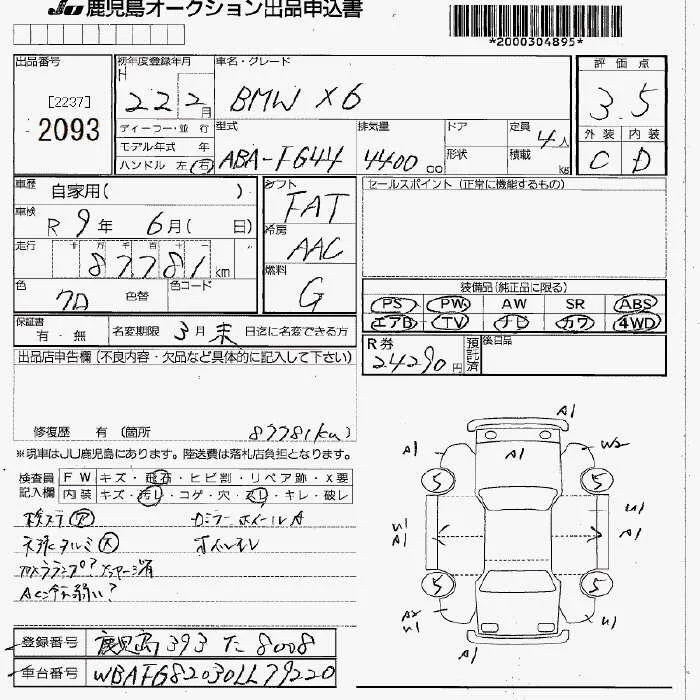 JU 鹿児島オークション出品申込書
*2000304895*
出品番号
[2237]
2093
初年度登録年月
H 22 2月
ディーラー・並 行
モデル年式 年
ハンドル 左・右
車名・グレード
BMW X6
型式
ABA-FG44
排気量
4400 cc
ドア
形状
定員
4人
積載
kg
評 価 点
3.5
外 装 内 装
C D
車歴
自家用( )
車検
R 9年 6月( 日)
走行
十 万 千 百 十 一
87781 km
色
クロ
色替
色コード
シフト
FAT
冷房
AAC
燃料
G
セールスポイント (正常に機能するもの)
装備品(純正品に限る)
PS PW AW SR ABS
エアB TV ナビ カワ 4WD
保証書
有・無
名変期限 3月末日迄に名変できる方
R券
24290円
預託済
後日品
出品店申告欄(不良内容・欠品など具体的に記入して下さい)
修復歴 有 (箇所 87781km)
※現車はJU鹿児島にあります。陸送費は落札店負担となります。
検査員記入欄
FW キズ・飛石・ヒビ割・リペア跡・X要
内装 キズ・汚レ・コゲ・穴・スレ・キレ・破レ
ホイールA
ACガス弱い?
登録番号
鹿児島 393 た 8008
車台番号
WBAFG82030LL79220
A1
A1
W2
5
5
U1
A1
U1
A1
5
5
A2
U1
U1
A1